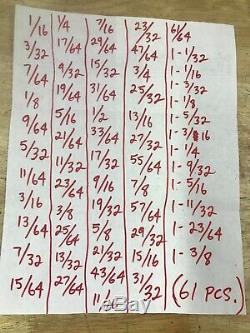 1/16
3/32
7/64
1/8
9/64
5/32
11/64
3/16
13/64
7/32
15/64
1/4
17/64
9/32
19/64
5/16
21/64
11/32
23/64
3/8
25/64
13/32
27/64
7/16
29/64
15/32
31/64
1/2
33/64
17/32
9/16
19/32
5/8
21/32
43/64
23/32
47/64
3/4
25/32
13/16
27/32
55/64
7/8
57/64
29/32
15/16
31/32
61/64
1-1/32
1-1/16
1-3/32
1-1/8
1-5/32
1-3/16
1-1/4
1-9/32
1-5/16
1-11/32
1-23/64
1-3/8
(61 PCS.)